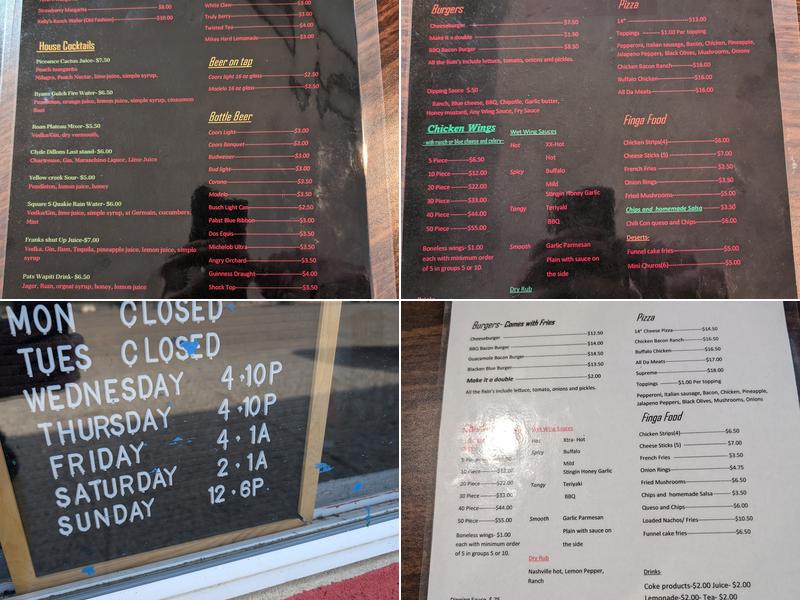 Strawberry Margarita $8.00
Kelly's Ranch Water (Old Fashion) $10.00
House Cocktails
Piceance Cactus Juice- $7.50
Peach margarita
Milagro, Peach Nectar, lime juice, simple syrup,
Ryans Gulch Fire Water- $6.50
Pendleton, orange juice, lemon juice, simple syrup, cinnamon
Roan Plateau Mixer- $5.50
Vodka/Gin, dry vermouth,
Clyde Dillons Last stand- $6.00
Chartreuse, Gin, Maraschino Liquor, Lime Juice
Yellow creek Sour- $5.00
Pendleton, lemon juice, honey
Square S Quakie Rain Water- $6.00
Vodka/Gin, lime juice, simple syrup, st Germain, cucumbers,
Mint
Franks shut Up Juice-$7.00
Vodka, Gin, Rum, Tequila, pineapple juice, lemon juice, simple
syrup
Pats Wapiti Drink- $6.50
Jager, Rum, orgeat syrup, honey, lemon juice
White Claw $3.00
Truly Berry $3.00
Twisted Tea $4.00
Mikes Hard Lemonade $3.00
Beer on tap
Coors light 16 oz glass $2.50
Modelo 16 oz glass $2.50
Bottle Beer
Coors Light $3.00
Coors Banquet $3.00
Budweiser $3.00
Bud light $3.00
Corona $3.50
Modelo $3.50
Busch Light Can $2.50
Pabst Blue Ribbon $3.00
Dos Equis $3.50
Michelob Ultra $3.50
Angry Orchard $3.50
Guinness Draught $4.00
Shock Top $3.50
Burgers
Cheeseburger $7.50
Make it a double $1.50
BBQ Bacon Burger $8.50
All the fixin's include lettuce, tomato, onions and pickles.
Dipping Sauce $.50
Ranch, Blue cheese, BBQ, Chipotle, Garlic butter,
Honey mustard, Any Wing Sauce, Fry Sauce
Chicken Wings
-with ranch or blue cheese and celery-
5 Piece $6.50
10 Piece $12.00
20 Piece $22.00
30 Piece $33.00
40 Piece $44.00
50 Piece $55.00
Boneless wings- $1.00
each with minimum order
of 5 in groups 5 or 10.
Wet Wing Sauces
Hot XX-Hot
Hot
Spicy Buffalo
Mild
Stingin Honey Garlic
Tangy Teriyaki
BBQ
Smooth Garlic Parmesan
Plain with sauce on
the side
Dry Rub
Pizza
14" $13.00
Toppings $1.00 Per topping
Pepperoni, Italian sausage, Bacon, Chicken, Pineapple,
Jalapeno Peppers, Black Olives, Mushrooms, Onions
Chicken Bacon Ranch $16.00
Buffalo Chicken $16.00
All Da Meats $16.00
Finga Food
Chicken Strips(4) $6.00
Cheese Sticks (5) $7.00
French Fries $2.50
Onion Rings $3.50
Fried Mushrooms $5.00
Chips and homemade Salsa $3.50
Chili Con queso and Chips $6.00
Deserts-
Funnel Cake fries $5.00
Mini Churos(6) $5.00
MON CLOSED
TUES CLOSED
WEDNESDAY 4-10P
THURSDAY 4-10P
FRIDAY 4-1A
SATURDAY 2-1A
SUNDAY 12-6P
Burgers- Comes with Fries
Cheeseburger $12.50
BBQ Bacon Burger $14.00
Guacamole Bacon Burger $14.50
Blacken Blue Burger $13.50
Make it a double $2.00
All the fixin's include lettuce, tomato, onions and pickles.
10 Piece $12.00
20 Piece $22.00
30 Piece $33.00
40 Piece $44.00
50 Piece $55.00
Boneless wings- $1.00
each with minimum order
of 5 in groups 5 or 10.
Wet Wing Sauces
Hot Xtra- Hot
Spicy Buffalo
Mild
Stingin Honey Garlic
Tangy Teriyaki
BBQ
Smooth Garlic Parmesan
Plain with sauce on
the side
Dry Rub
Nashville hot, Lemon Pepper,
Ranch
Dipping Sauce $.75
Pizza
14" Cheese Pizza $14.50
Chicken Bacon Ranch $16.50
Buffalo Chicken $16.50
All Da Meats $17.00
Supreme $18.00
Toppings $1.00 Per topping
Pepperoni, Italian sausage, Bacon, Chicken, Pineapple,
Jalapeno Peppers, Black Olives, Mushrooms, Onions
Finga Food
Chicken Strips(4) $6.50
Cheese Sticks (5) $7.00
French Fries $3.50
Onion Rings $4.75
Fried Mushrooms $6.50
Chips and homemade Salsa $3.50
Queso and Chips $6.00
Loaded Nachos/ Fries $10.50
Funnel cake fries $6.50
Drinks-
Coke products-$2.00 Juice- $2.00
Lemonade-$2.00- Tea- $2.00